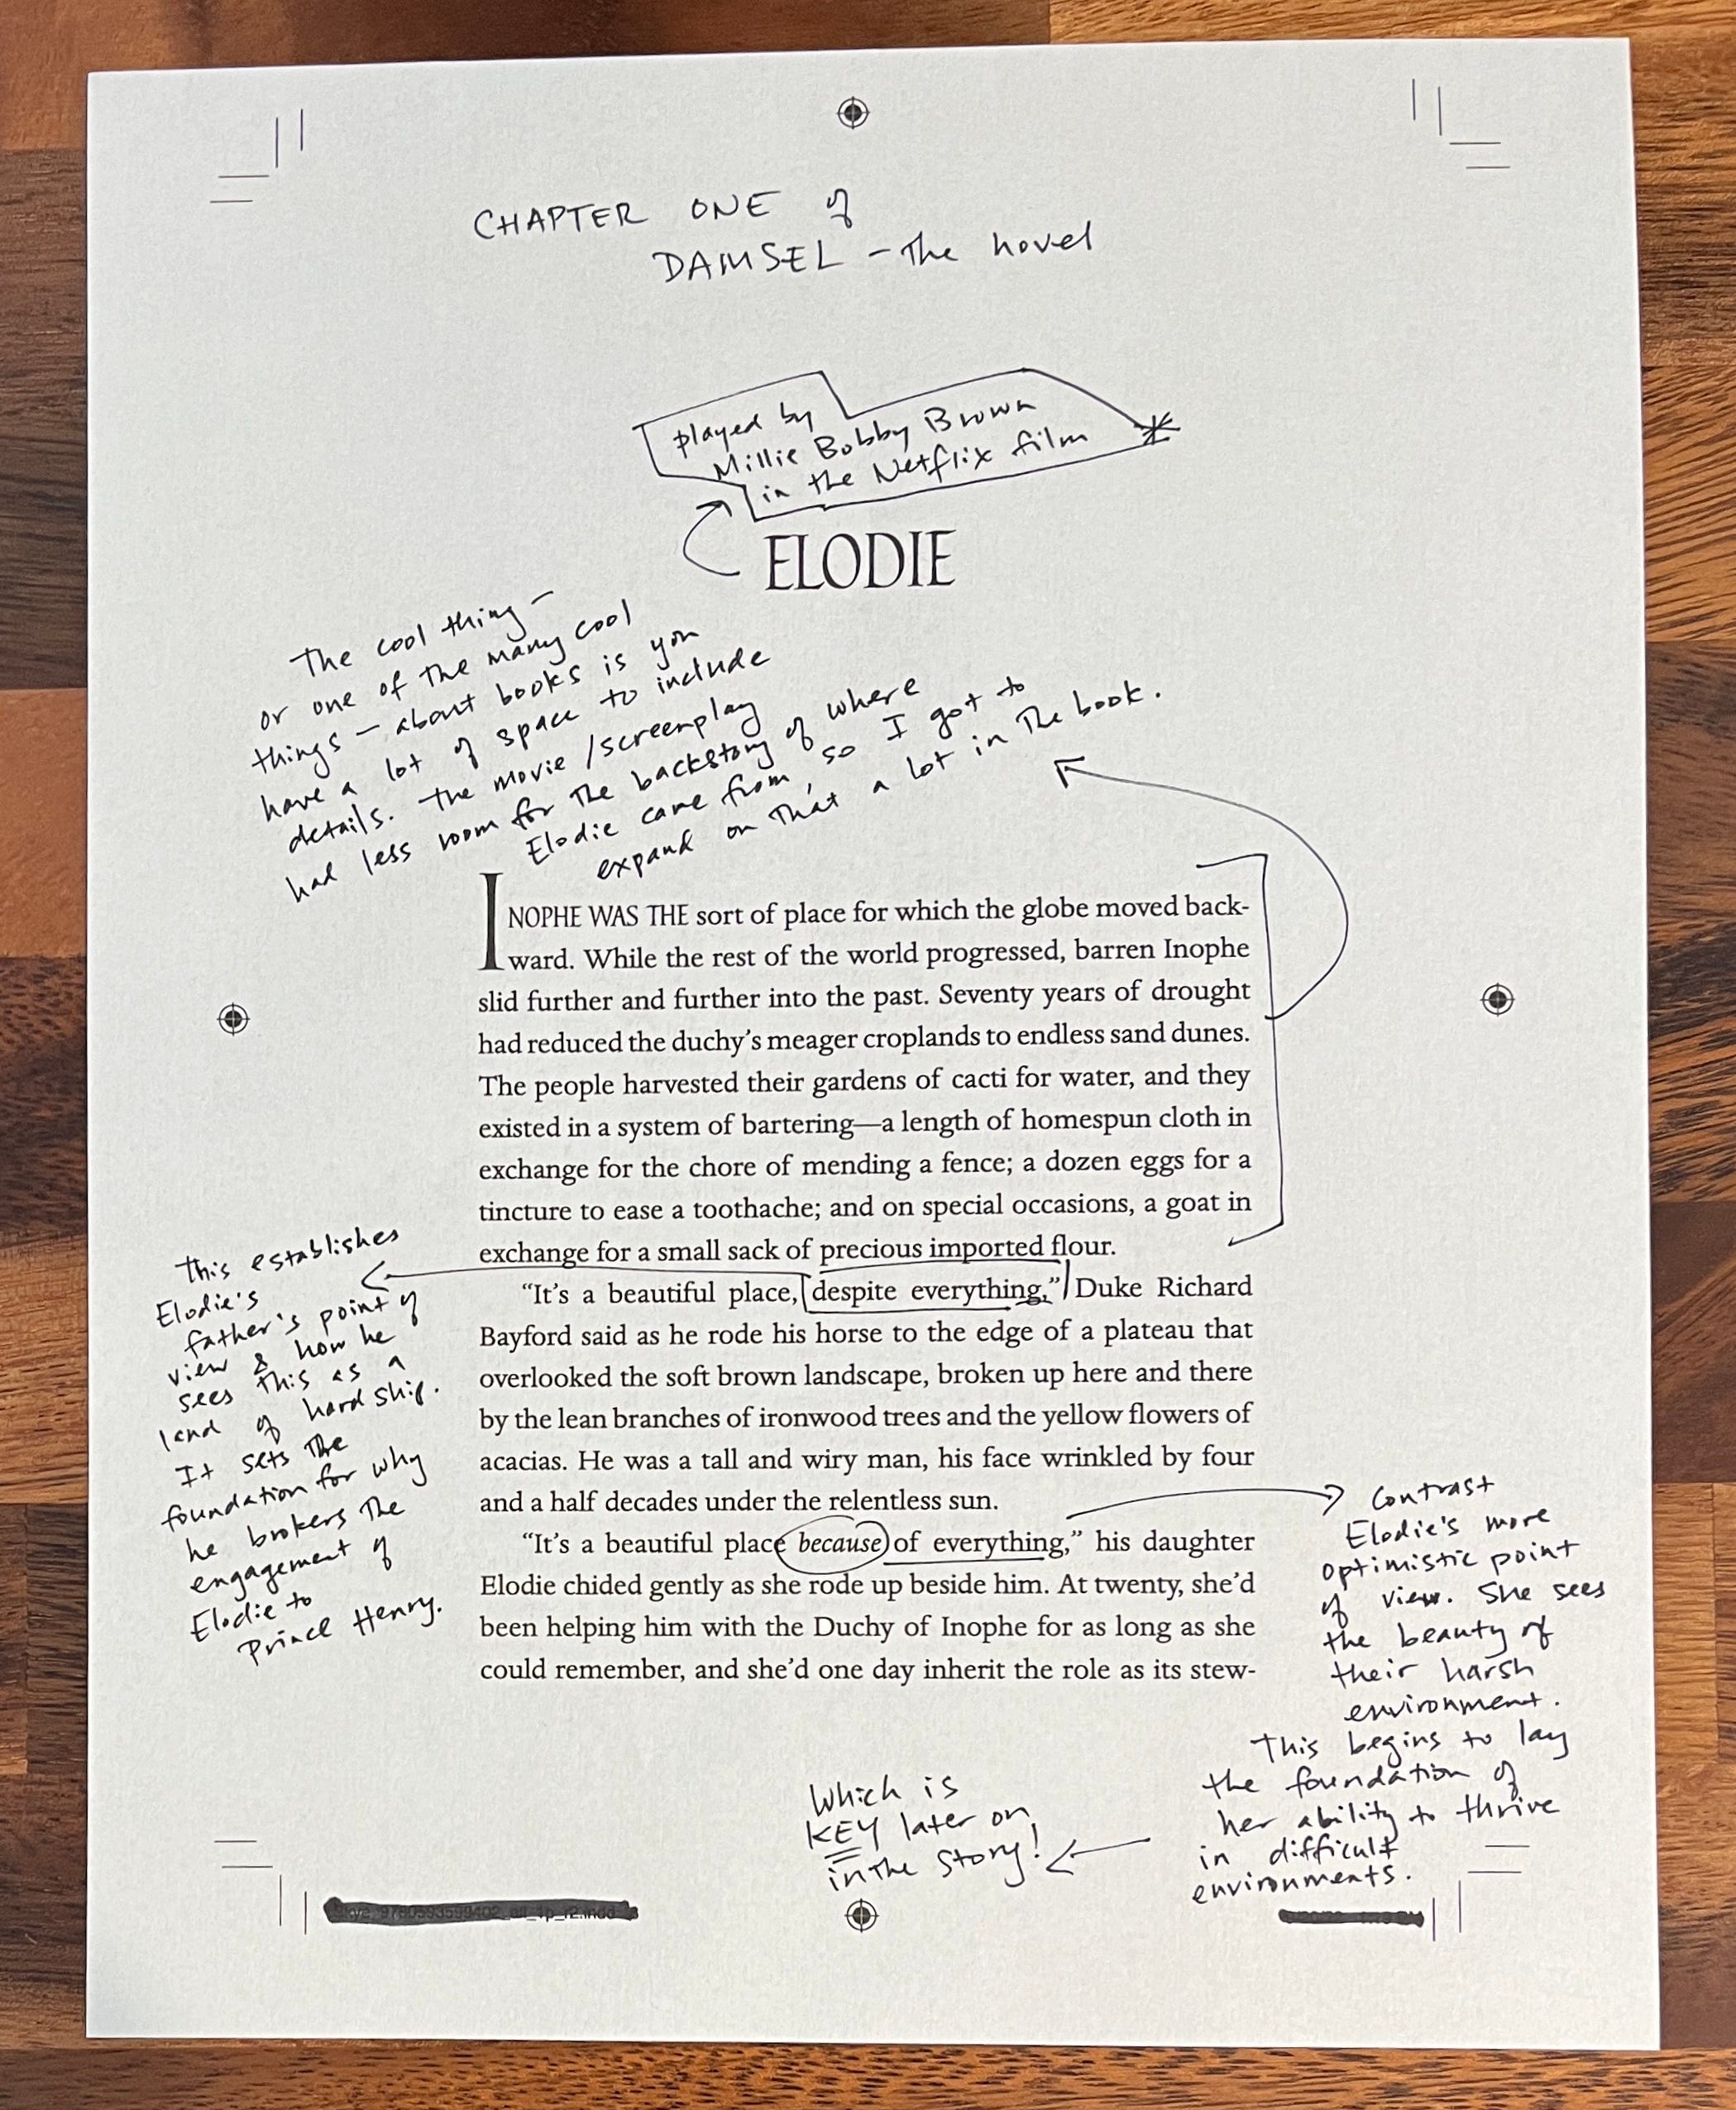 CHAPTER ONE of
DAMSEL - The novel
played by
Millie Bobby Brown
in the Netflix film
ELODIE
The cool thing -
or one of the many cool
things - about books is you
have a lot of space to include
details. The movie / screenplay
had less room for the backstory of where
Elodie came from, so I got to
expand on that a lot in the book.
INOPHE WAS THE sort of place for which the globe moved back-
ward. While the rest of the world progressed, barren Inophe
slid further and further into the past. Seventy years of drought
had reduced the duchy’s meager croplands to endless sand dunes.
The people harvested their gardens of cacti for water, and they
existed in a system of bartering—a length of homespun cloth in
exchange for the chore of mending a fence; a dozen eggs for a
tincture to ease a toothache; and on special occasions, a goat in
exchange for a small sack of precious imported flour.
“It’s a beautiful place, despite everything,” Duke Richard
Bayford said as he rode his horse to the edge of a plateau that
overlooked the soft brown landscape, broken up here and there
by the lean branches of ironwood trees and the yellow flowers of
acacias. He was a tall and wiry man, his face wrinkled by four
and a half decades under the relentless sun.
“It’s a beautiful place because of everything,” his daughter
Elodie chided gently as she rode up beside him. At twenty, she’d
been helping him with the Duchy of Inophe for as long as she
could remember, and she’d one day inherit the role as its stew-
This establishes
Elodie's
father's point of
view & how he
sees this as a
land of hardship.
It sets the
foundation for why
he brokers the
engagement of
Elodie to
Prince Henry.
Contrast
Elodie's more
optimistic point
of view. She sees
the beauty of
their harsh
environment.
This begins to lay
the foundation of
her ability to thrive
in difficult
environments.
Which is
KEY later on
in the story!